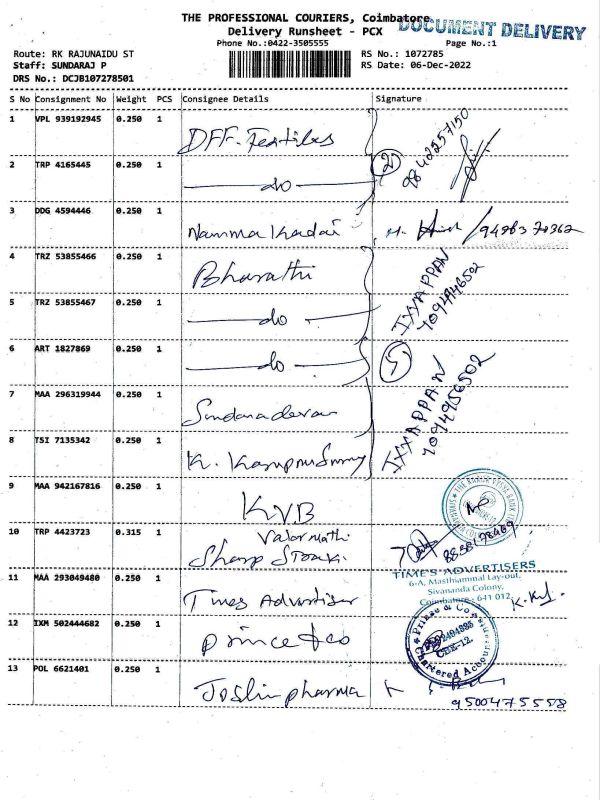 THE PROFESSIONAL COURIERS, Coimbatore
DOCUMENT DELIVERY
Delivery Runsheet - PCX
Phone No.:0422-3505555
Page No.:1
Route: RK RAJUNAIDU ST
RS No.: 1072785
Staff: SUNDARAJ P
RS Date: 06-Dec-2022
DRS No.: DCJB107278501
S No Consignment No Weight PCS Consignee Details Signature
1 VPL 939192945 0.250 1 DFF-Textiles
9842257150
2 TRP 4165445 0.250 1 do
2
3 DDG 4594446 0.250 1 Namma Kadai
/9428370362
4 TRZ 53855466 0.250 1 Bharathi
IXXAPPAN
5 TRZ 53855467 0.250 1 do
6 ART 1827869 0.250 1 do
5
IXXAPPAN
7094956502
7 MAA 296319944 0.250 1
8 TSI 7135342 0.250 1 K.
9 MAA 942167816 0.250 1 KVB
10 TRP 4423723 0.315 1 Valarmathi
Sharp
11 MAA 293049480 0.250 1 Times Advertiser
TIME'S ADVERTISERS
6-A, Masthiammal Lay-out,
Sivananda Colony,
Coimbatore - 641 012
12 IXM 502444682 0.250 1 prince & co
Chartered Accountants
CBE-12
13 POL 6621401 0.250 1 Joslin pharma
9500475558